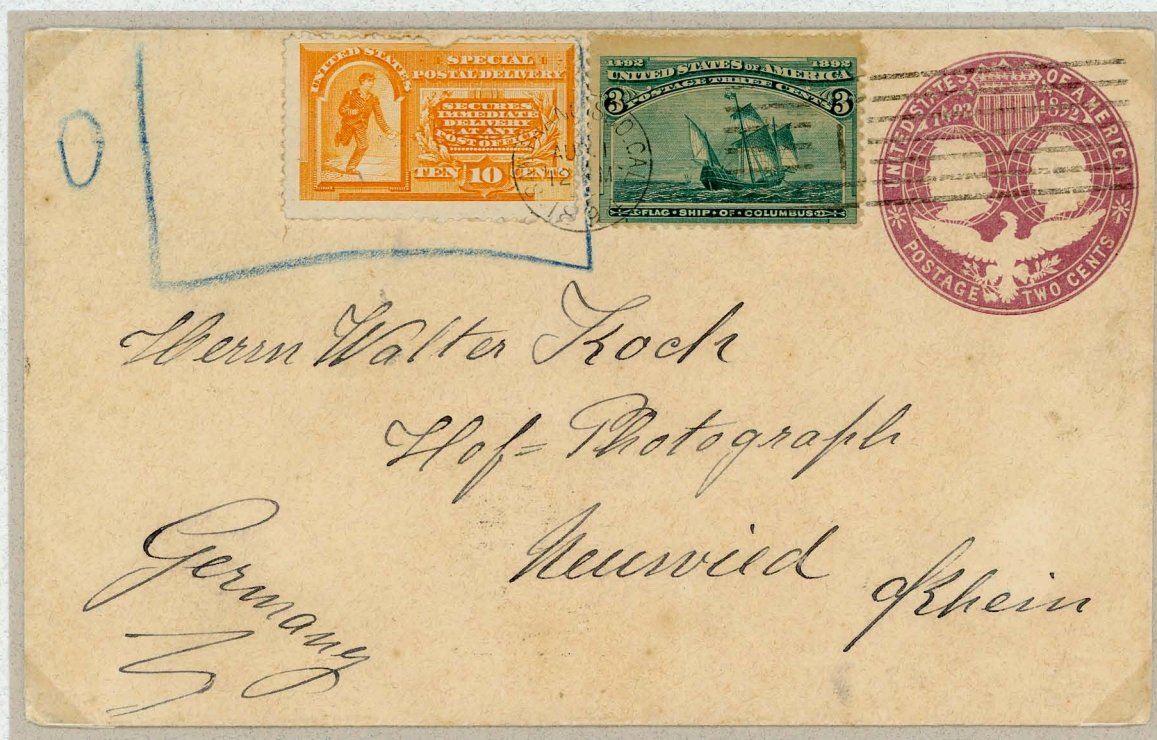 O
UNITED STATES
SPECIAL
POSTAL DELIVERY
SECURES
IMMEDIATE
DELIVERY
AT ANY
POST OFFICE
TEN 10 CENTS
1492 1892
UNITED STATES OF AMERICA
POSTAGE THREE CENTS
3 3
FLAG · SHIP · OF · COLUMBUS
UNITED STATES OF AMERICA
1492 1892
POSTAGE TWO CENTS
Herrn Walter Koch
Hof= Photograph
Neuwied
Rhein
Germany